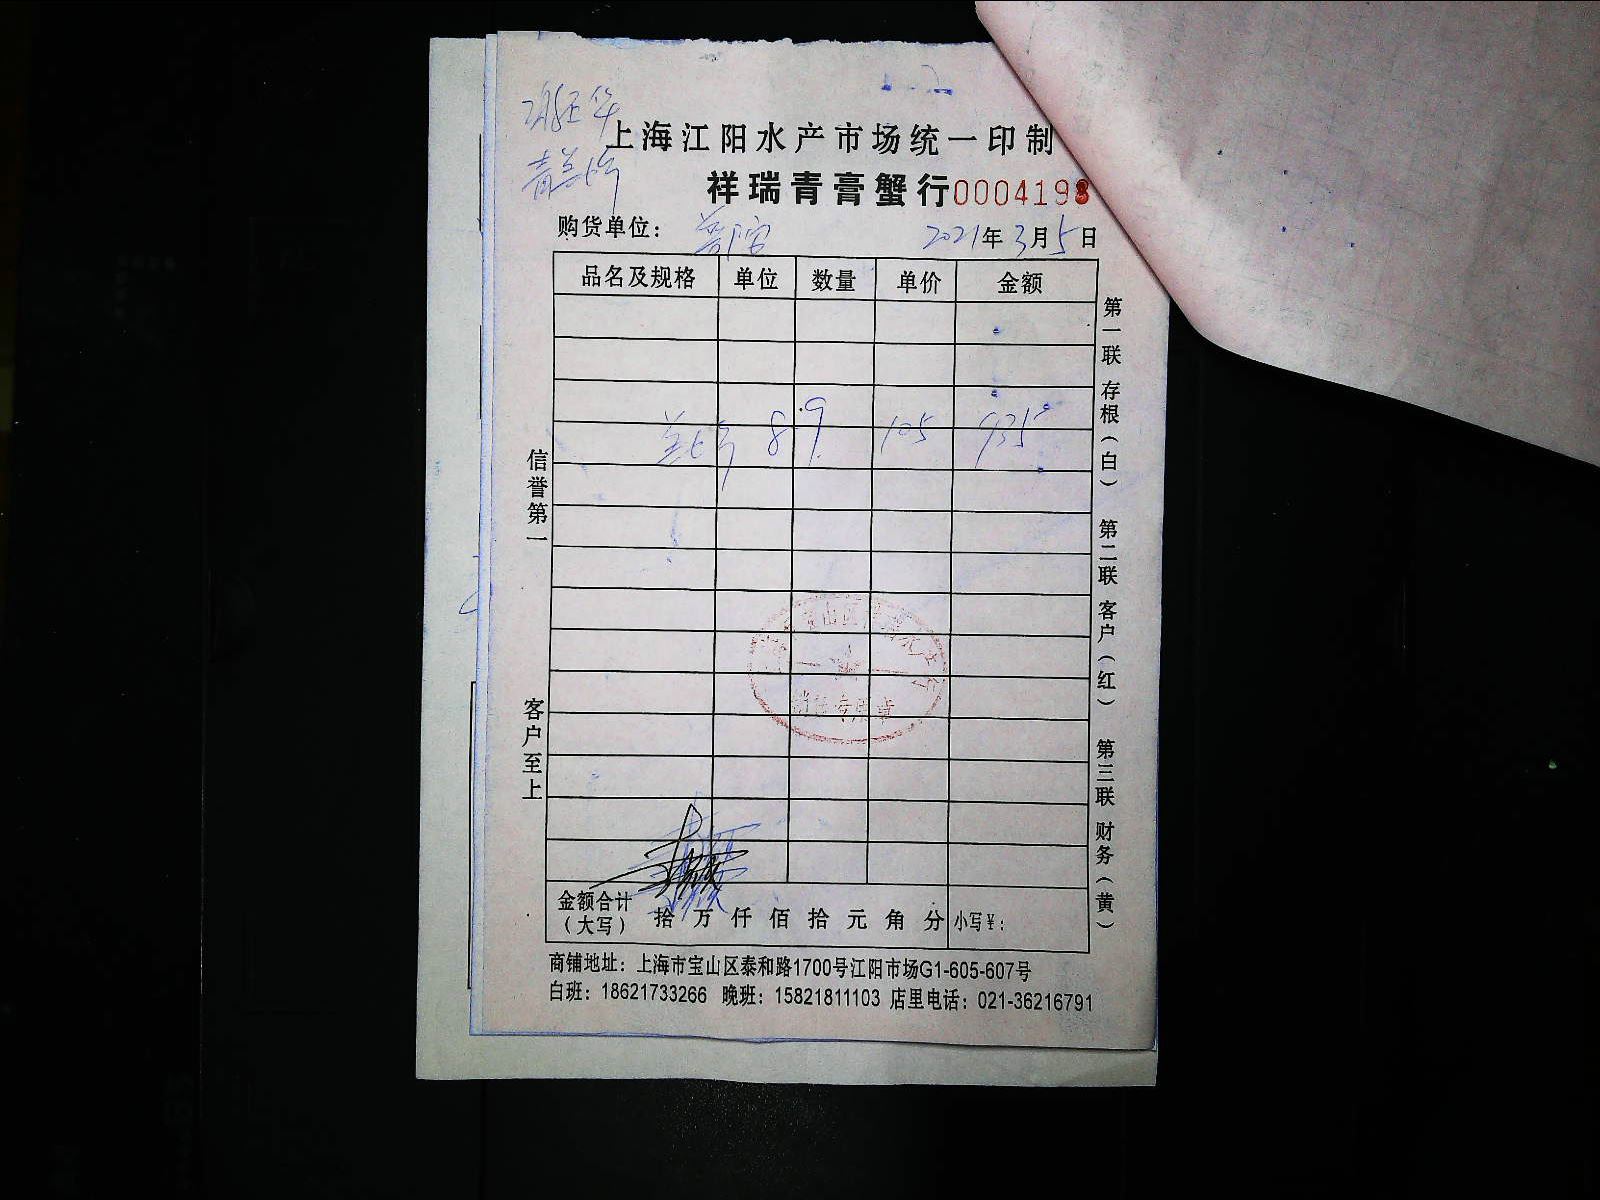 上海江阳水产市场统一印制
祥瑞青膏蟹行0004198
购货单位：普陀 2021年3月5日
品名及规格 单位 数量 单价 金额
8.9 105 935
信誉第一
客户至上
第一联 存根（白） 第二联 客户（红） 第三联 财务（黄）
宝山区
专用章
金额合计（大写） 拾 万 仟 佰 拾 元 角 分 小写￥：
商铺地址：上海市宝山区泰和路1700号江阳市场G1-605-607号
白班：18621733266 晚班：15821811103 店里电话：021-36216791